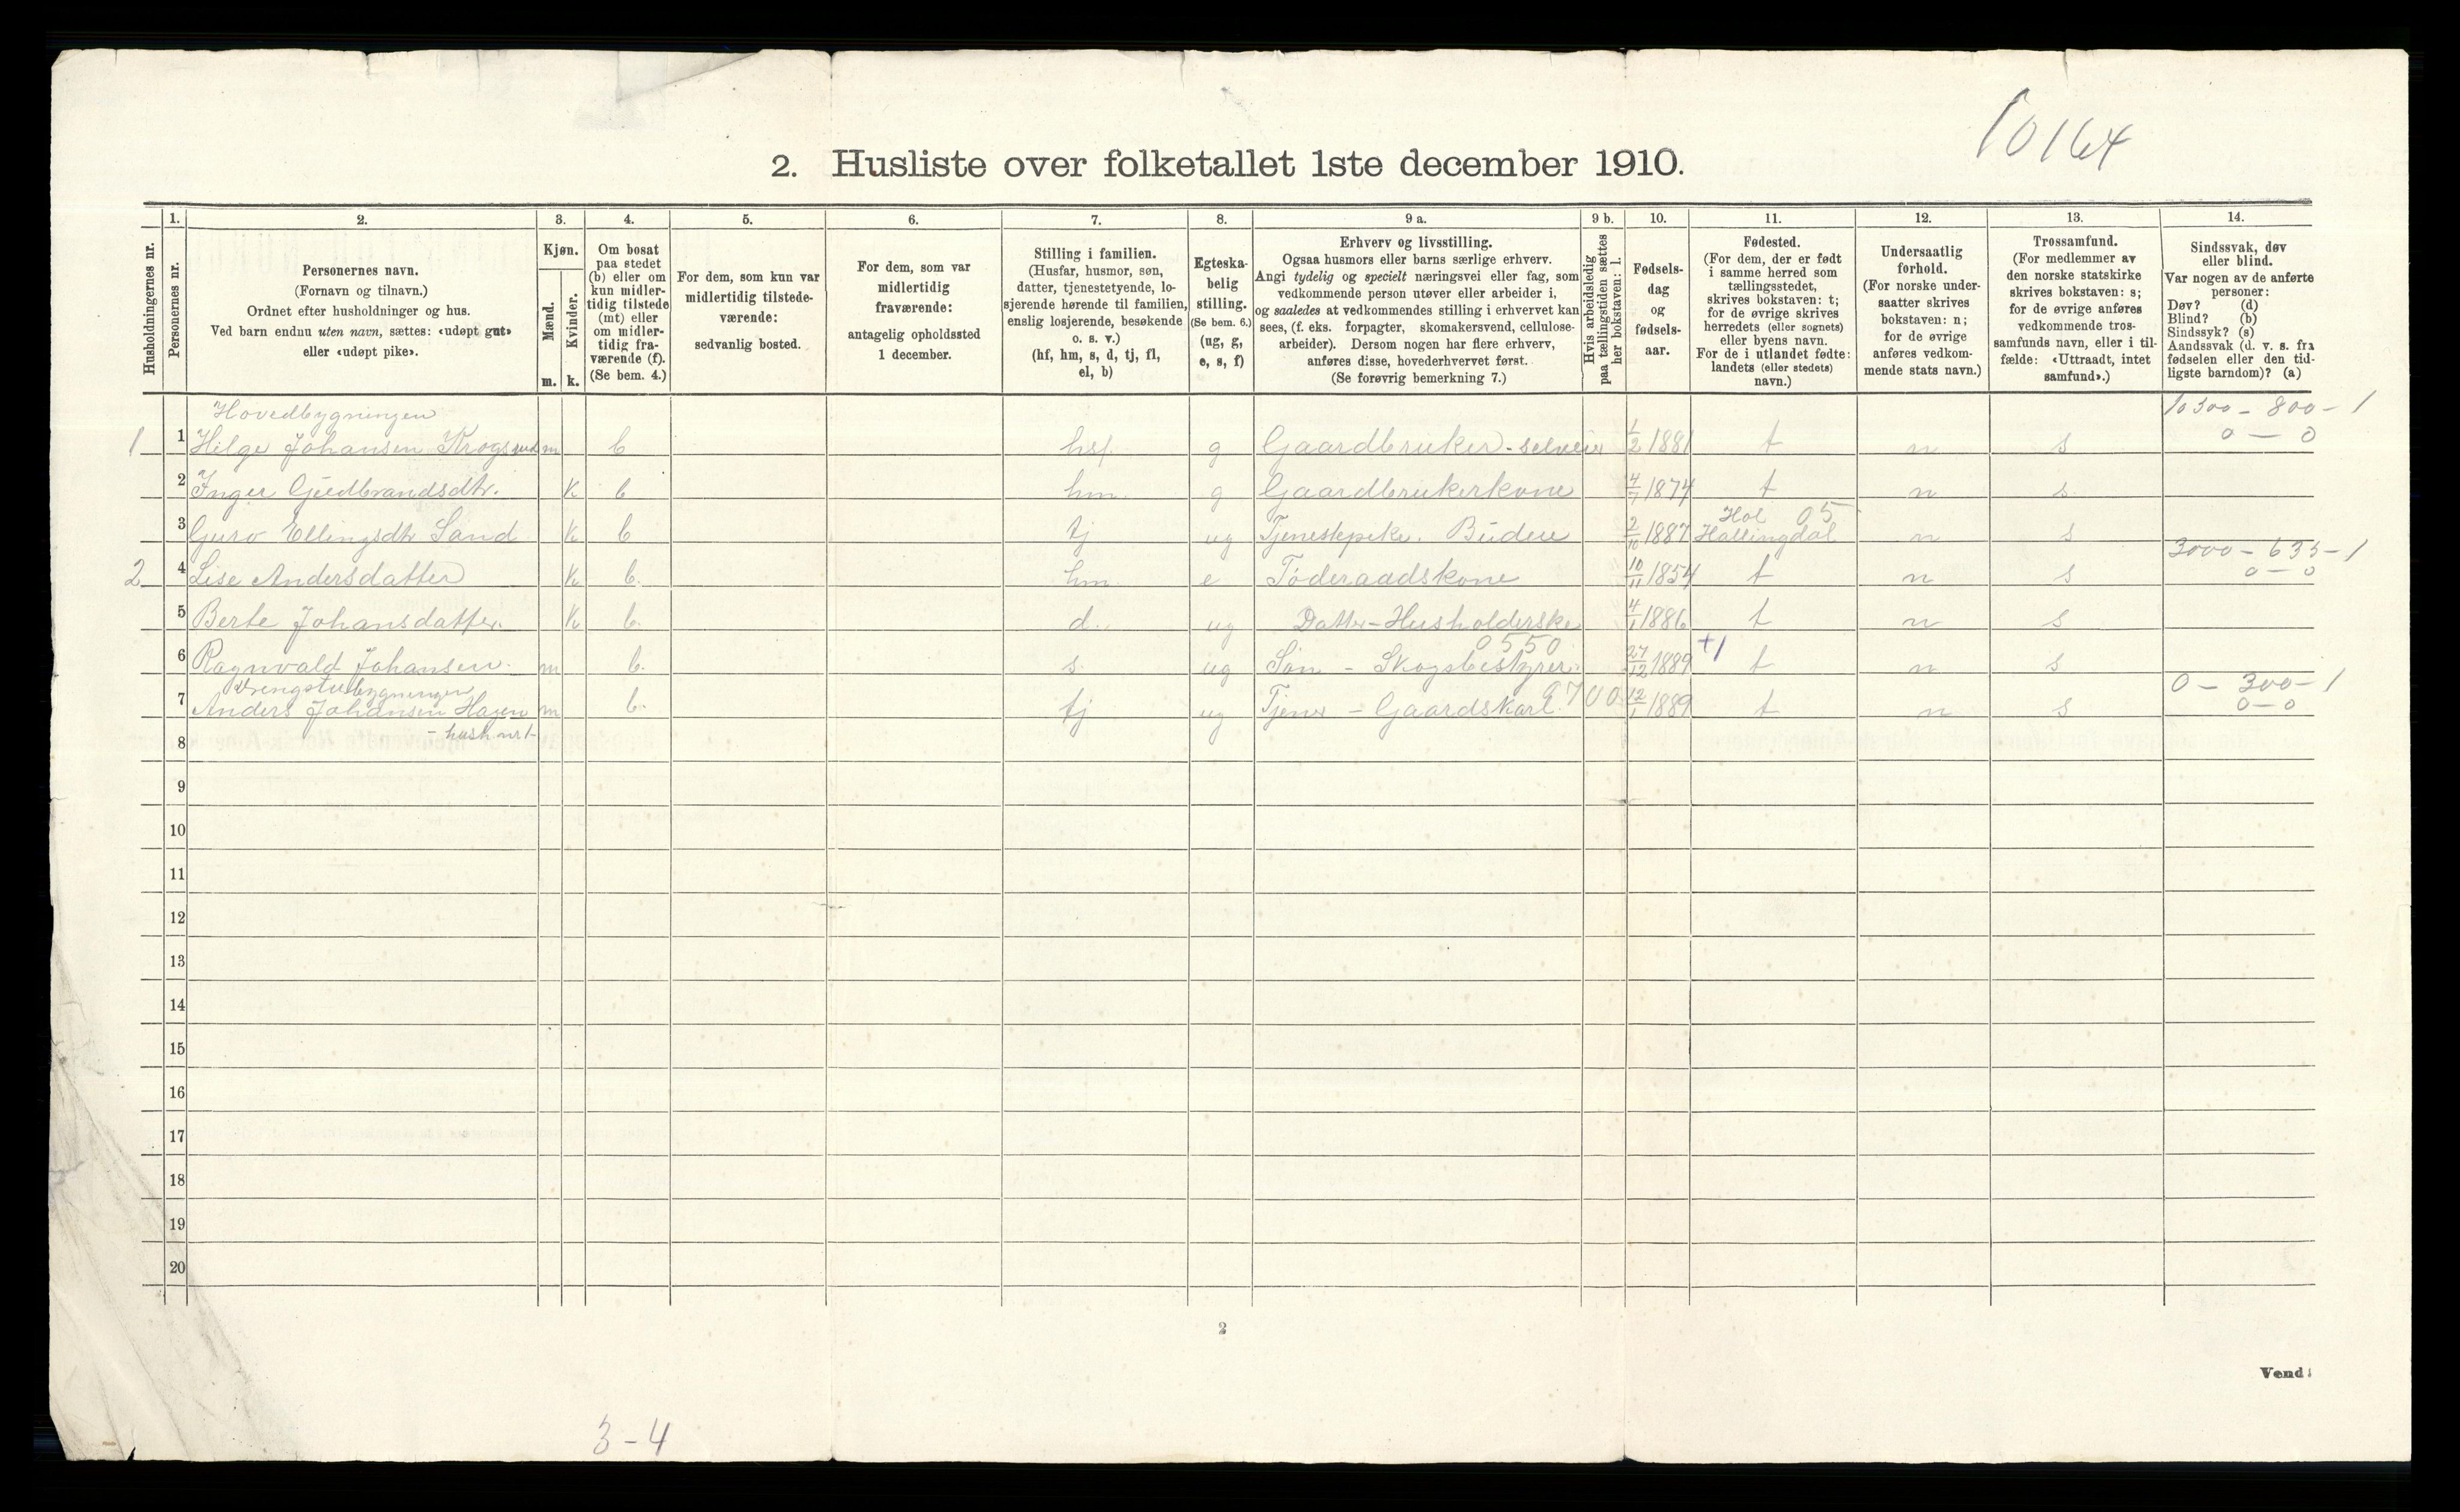 10164
2. Husliste over folketallet 1ste december 1910.
1. 2. 3. 4. 5. 6. 7. 8. 9 a. 9 b. 10. 11. 12. 13. 14.
Husholdningernes nr.
Personernes nr.
Personernes navn.
(Fornavn og tilnavn.)
Ordnet efter husholdninger og hus.
Ved barn endnu uten navn, sættes: «udøpt gut»
eller «udøpt pike».
Kjøn.
Mænd.
Kvinder.
m. k.
Om bosat
paa stedet
(b) eller om
kun midler-
tidig tilstede
(mt) eller
om midler-
tidig fra-
værende (f).
(Se bem. 4.)
For dem, som kun var
midlertidig tilstede-
værende:
sedvanlig bosted.
For dem, som var
midlertidig
fraværende:
antagelig opholdssted
1 december.
Stilling i familien.
(Husfar, husmor, søn,
datter, tjenestetyende, lo-
sjerende hørende til familien,
enslig losjerende, besøkende
o. s. v.)
(hf, hm, s, d, tj, fl,
el, b)
Egteska-
belig
stilling.
(Se bem. 6.)
(ug, g,
e, s, f)
Erhverv og livsstilling.
Ogsaa husmors eller barns særlige erhverv.
Angi tydelig og specielt næringsvei eller fag, som
vedkommende person utøver eller arbeider i,
og saaledes at vedkommendes stilling i erhvervet kan
sees, (f. eks. forpagter, skomakersvend, cellulose-
arbeider). Dersom nogen har flere erhverv,
anføres disse, hovederhvervet først.
(Se forøvrig bemerkning 7.)
Hvis arbeidsledig
paa tællingstiden sættes
her bokstaven: l.
Fødsels-
dag
og
fødsels-
aar.
Fødested.
(For dem, der er født
i samme herred som
tællingsstedet,
skrives bokstaven: t;
for de øvrige skrives
herredets (eller sognets)
eller byens navn.
For de i utlandet fødte:
landets (eller stedets)
navn.)
Undersaatlig
forhold.
(For norske under-
saatter skrives
bokstaven: n;
for de øvrige
anføres vedkom-
mende stats navn.)
Trossamfund.
(For medlemmer av
den norske statskirke
skrives bokstaven: s;
for de øvrige anføres
vedkommende tros-
samfunds navn, eller i til-
fælde: «Uttraadt, intet
samfund».)
Sindssvak, døv
eller blind.
Var nogen av de anførte
personer:
Døv? (d)
Blind? (b)
Sindssyk? (s)
Aandssvak (d. v. s. fra
fødselen eller den tid-
ligste barndom)? (a)
Hovedbygningen 10300 - 800 - 1
1 1 Helge Johansen Krogsrud m b hsf. g Gaardbruker - selveier 1/2 1881 t n s 0 - 0
2 Inger Gudbrandsdtr. k b hm. g Gaardbrukerkone 4/7 1874 t n s
Hol 05
3 Guro Ellingsdtr Sand k b tj ug Tjenestepike. Budeie 2/10 1887 Hallingdal n s
3000 - 635 - 1
2 4 Lise Andersdatter k b. hm. e Føderaadskone 10/11 1854 t n s 0 - 0
5 Berte Johansdatter. k b. d. ug Datter - Husholderske 4/1 1886 t n s
0550 +1
6 Ragnvald Johansen. m b. s. ug Søn - Skogsbestyrer. 27/12 1889 t n s
Drengstubygningen 9700 0 - 300 - 1
7 Anders Johansen Hagen m b. tj ug Tjener - Gaardskarl. 12/1 1889 t n s 0 - 0
8
9
10
11
12
13
14
15
16
17
18
19
20
2
Vend!
3-4